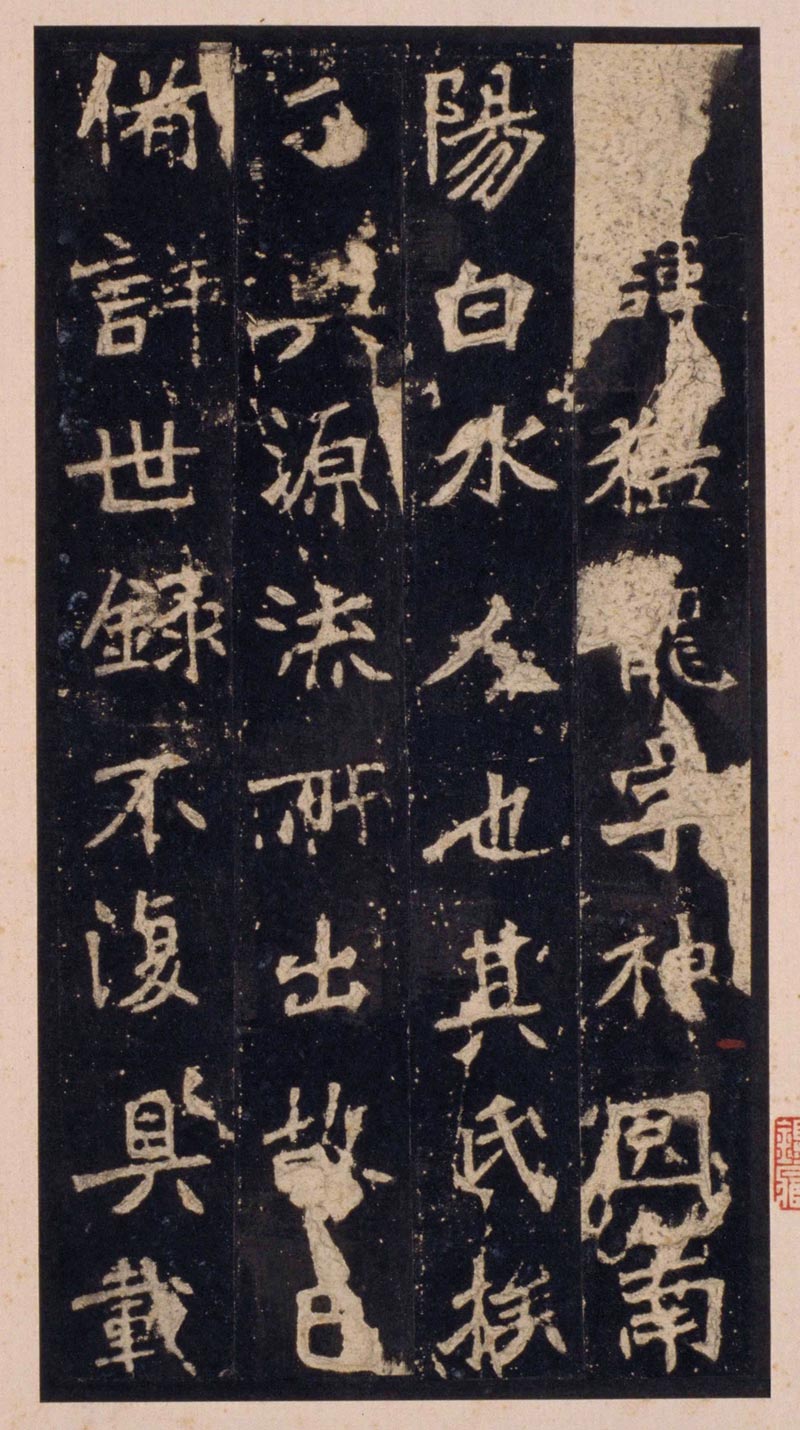 諱猛龍字神囧南
陽白水人也其氏族
源流所出故
俻詳世錄不復具載